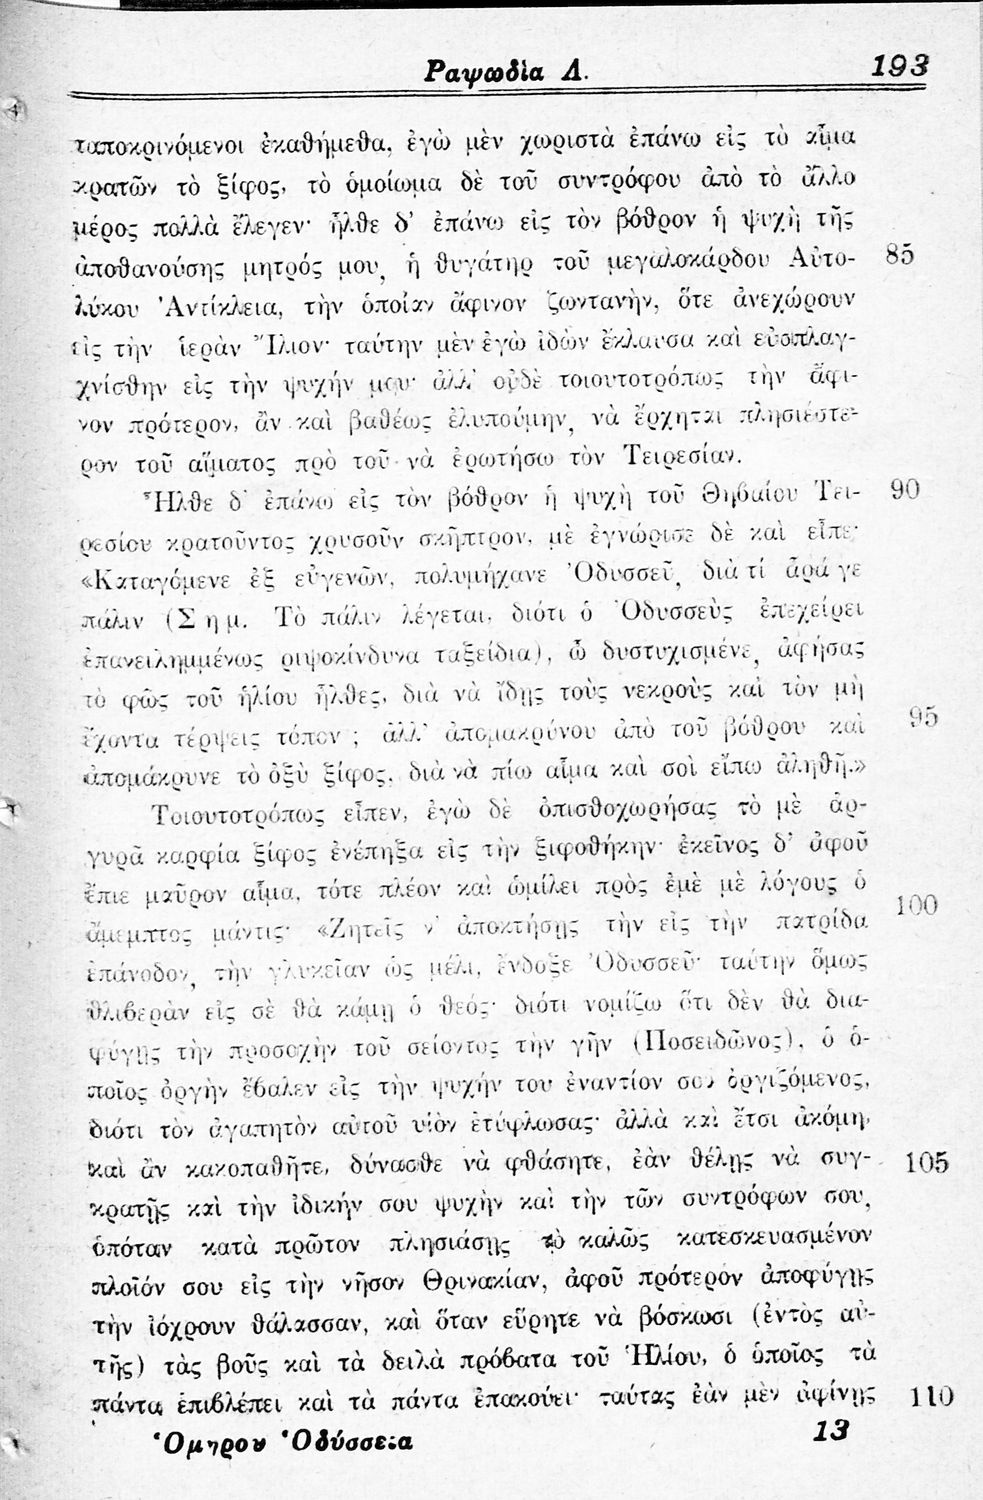 Ραψωδία Λ. 193
ταποκρινόμενοι ἐκαθήμεθα, ἐγὼ μὲν χωριστὰ ἐπάνω εἰς τὸ αἷμα
κρατῶν τὸ ξίφος, τὸ ὁμοίωμα δὲ τοῦ συντρόφου ἀπὸ τὸ ἄλλο
μέρος πολλὰ ἔλεγεν· ἦλθε δ' ἐπάνω εἰς τὸν βόθρον ἡ ψυχὴ τῆς
ἀποθανούσης μητρός μου, ἡ θυγάτηρ τοῦ μεγαλοκάρδου Αὐτο- 85
λύκου Ἀντίκλεια, τὴν ὁποίαν ἄφινον ζωντανὴν, ὅτε ἀνεχώρουν
εἰς τὴν ἱερὰν Ἴλιον· ταύτην μὲν ἐγὼ ἰδὼν ἔκλαυσα καὶ εὐσπλαγ-
χνίσθην εἰς τὴν ψυχήν μου· ἀλλ' οὐδὲ τοιουτοτρόπως τὴν ἄφι-
νον πρότερον, ἂν καὶ βαθέως ἐλυπούμην, νὰ ἔρχηται πλησιέστε-
ρον τοῦ αἵματος πρὸ τοῦ νὰ ἐρωτήσω τὸν Τειρεσίαν.
Ἦλθε δ' ἐπάνω εἰς τὸν βόθρον ἡ ψυχὴ τοῦ Θηβαίου Τει- 90
ρεσίου κρατοῦντος χρυσοῦν σκῆπτρον, μὲ ἐγνώρισε δὲ καὶ εἶπε·
«Καταγόμενε ἐξ εὐγενῶν, πολυμήχανε Ὀδυσσεῦ, διὰ τί ἆρά γε
πάλιν (Σημ. Τὸ πάλιν λέγεται, διότι ὁ Ὀδυσσεὺς ἐπεχείρει
ἐπανειλημμένως ριψοκίνδυνα ταξείδια), ὦ δυστυχισμένε, ἀφήσας
τὸ φῶς τοῦ ἡλίου ἦλθες, διὰ νὰ ἴδῃς τοὺς νεκροὺς καὶ τὸν μὴ
ἔχοντα τέρψεις τόπον ; ἀλλ' ἀπομακρύνου ἀπὸ τοῦ βόθρου καὶ 95
ἀπομάκρυνε τὸ ὀξὺ ξίφος, διὰ νὰ πίω αἷμα καὶ σοὶ εἴπω ἀληθῆ.»
Τοιουτοτρόπως εἶπεν, ἐγὼ δὲ ὀπισθοχωρήσας τὸ μὲ ἀρ-
γυρᾶ καρφία ξίφος ἐνέπηξα εἰς τὴν ξιφοθήκην· ἐκεῖνος δ' ἀφοῦ
ἔπιε μαῦρον αἷμα, τότε πλέον καὶ ὡμίλει πρὸς ἐμὲ μὲ λόγους ὁ
ἄμεμπτος μάντις· «Ζητεῖς ν' ἀποκτήσῃς τὴν εἰς τὴν πατρίδα 100
ἐπάνοδον, τὴν γλυκεῖαν ὡς μέλι, ἔνδοξε Ὀδυσσεῦ· ταύτην ὅμως
θλιβερὰν εἰς σὲ θὰ κάμῃ ὁ θεός· διότι νομίζω ὅτι δὲν θὰ δια-
φύγῃς τὴν προσοχὴν τοῦ σείοντος τὴν γῆν (Ποσειδῶνος), ὁ ὁ-
ποῖος ὀργὴν ἔβαλεν εἰς τὴν ψυχήν του ἐναντίον σου ὀργιζόμενος,
διότι τὸν ἀγαπητὸν αὐτοῦ υἱὸν ἐτύφλωσας· ἀλλὰ καὶ ἔτσι ἀκόμη,
καὶ ἂν κακοπαθῆτε, δύνασθε νὰ φθάσητε, ἐὰν θέλῃς νὰ συγ- 105
κρατῇς καὶ τὴν ἰδικήν σου ψυχὴν καὶ τὴν τῶν συντρόφων σου,
ὁπόταν κατὰ πρῶτον πλησιάσῃς τὸ καλῶς κατεσκευασμένον
πλοῖόν σου εἰς τὴν νῆσον Θρινακίαν, ἀφοῦ πρότερον ἀποφύγῃς
τὴν ἰόχρουν θάλασσαν, καὶ ὅταν εὕρητε νὰ βόσκωσι (ἐντὸς αὐ-
τῆς) τὰς βοῦς καὶ τὰ δειλὰ πρόβατα τοῦ Ἡλίου, ὁ ὁποῖος τὰ
πάντα ἐπιβλέπει καὶ τὰ πάντα ἐπακούει· ταύτας ἐὰν μὲν ἀφίνῃς 110
Ὁμηρου Ὀδύσσεια 13